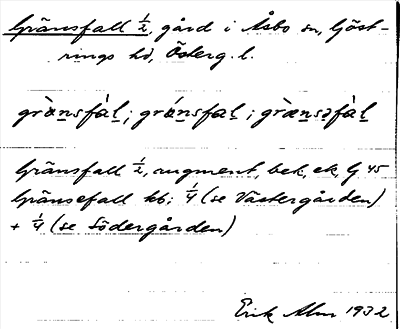 Gränsfall ½, gård i Åsbo sn, Göst-
rings hd, Österg. l.
grä̀nsfàl; grä́nsfal; græ̀nsəfàl
Gränsfall ½, augment, bek, ek, G 45
Gränsefall kb; ¼ (se Västergården)
+ ¼ (se Södergården)
Erik Alm 1932